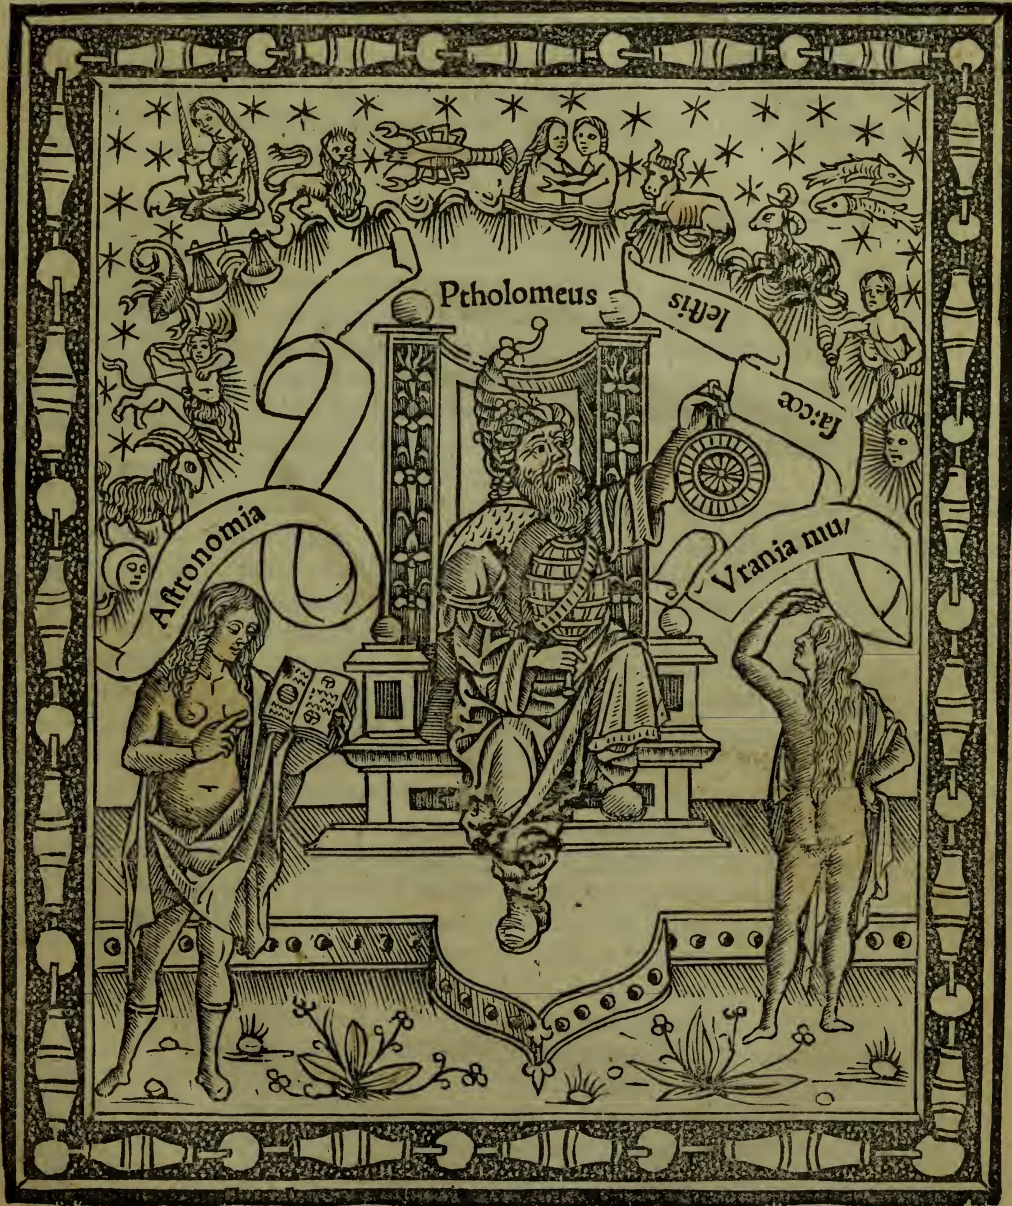 Ptholomeus
Aſtronomia
Vrania mu/
ſa:cœ
leſtis